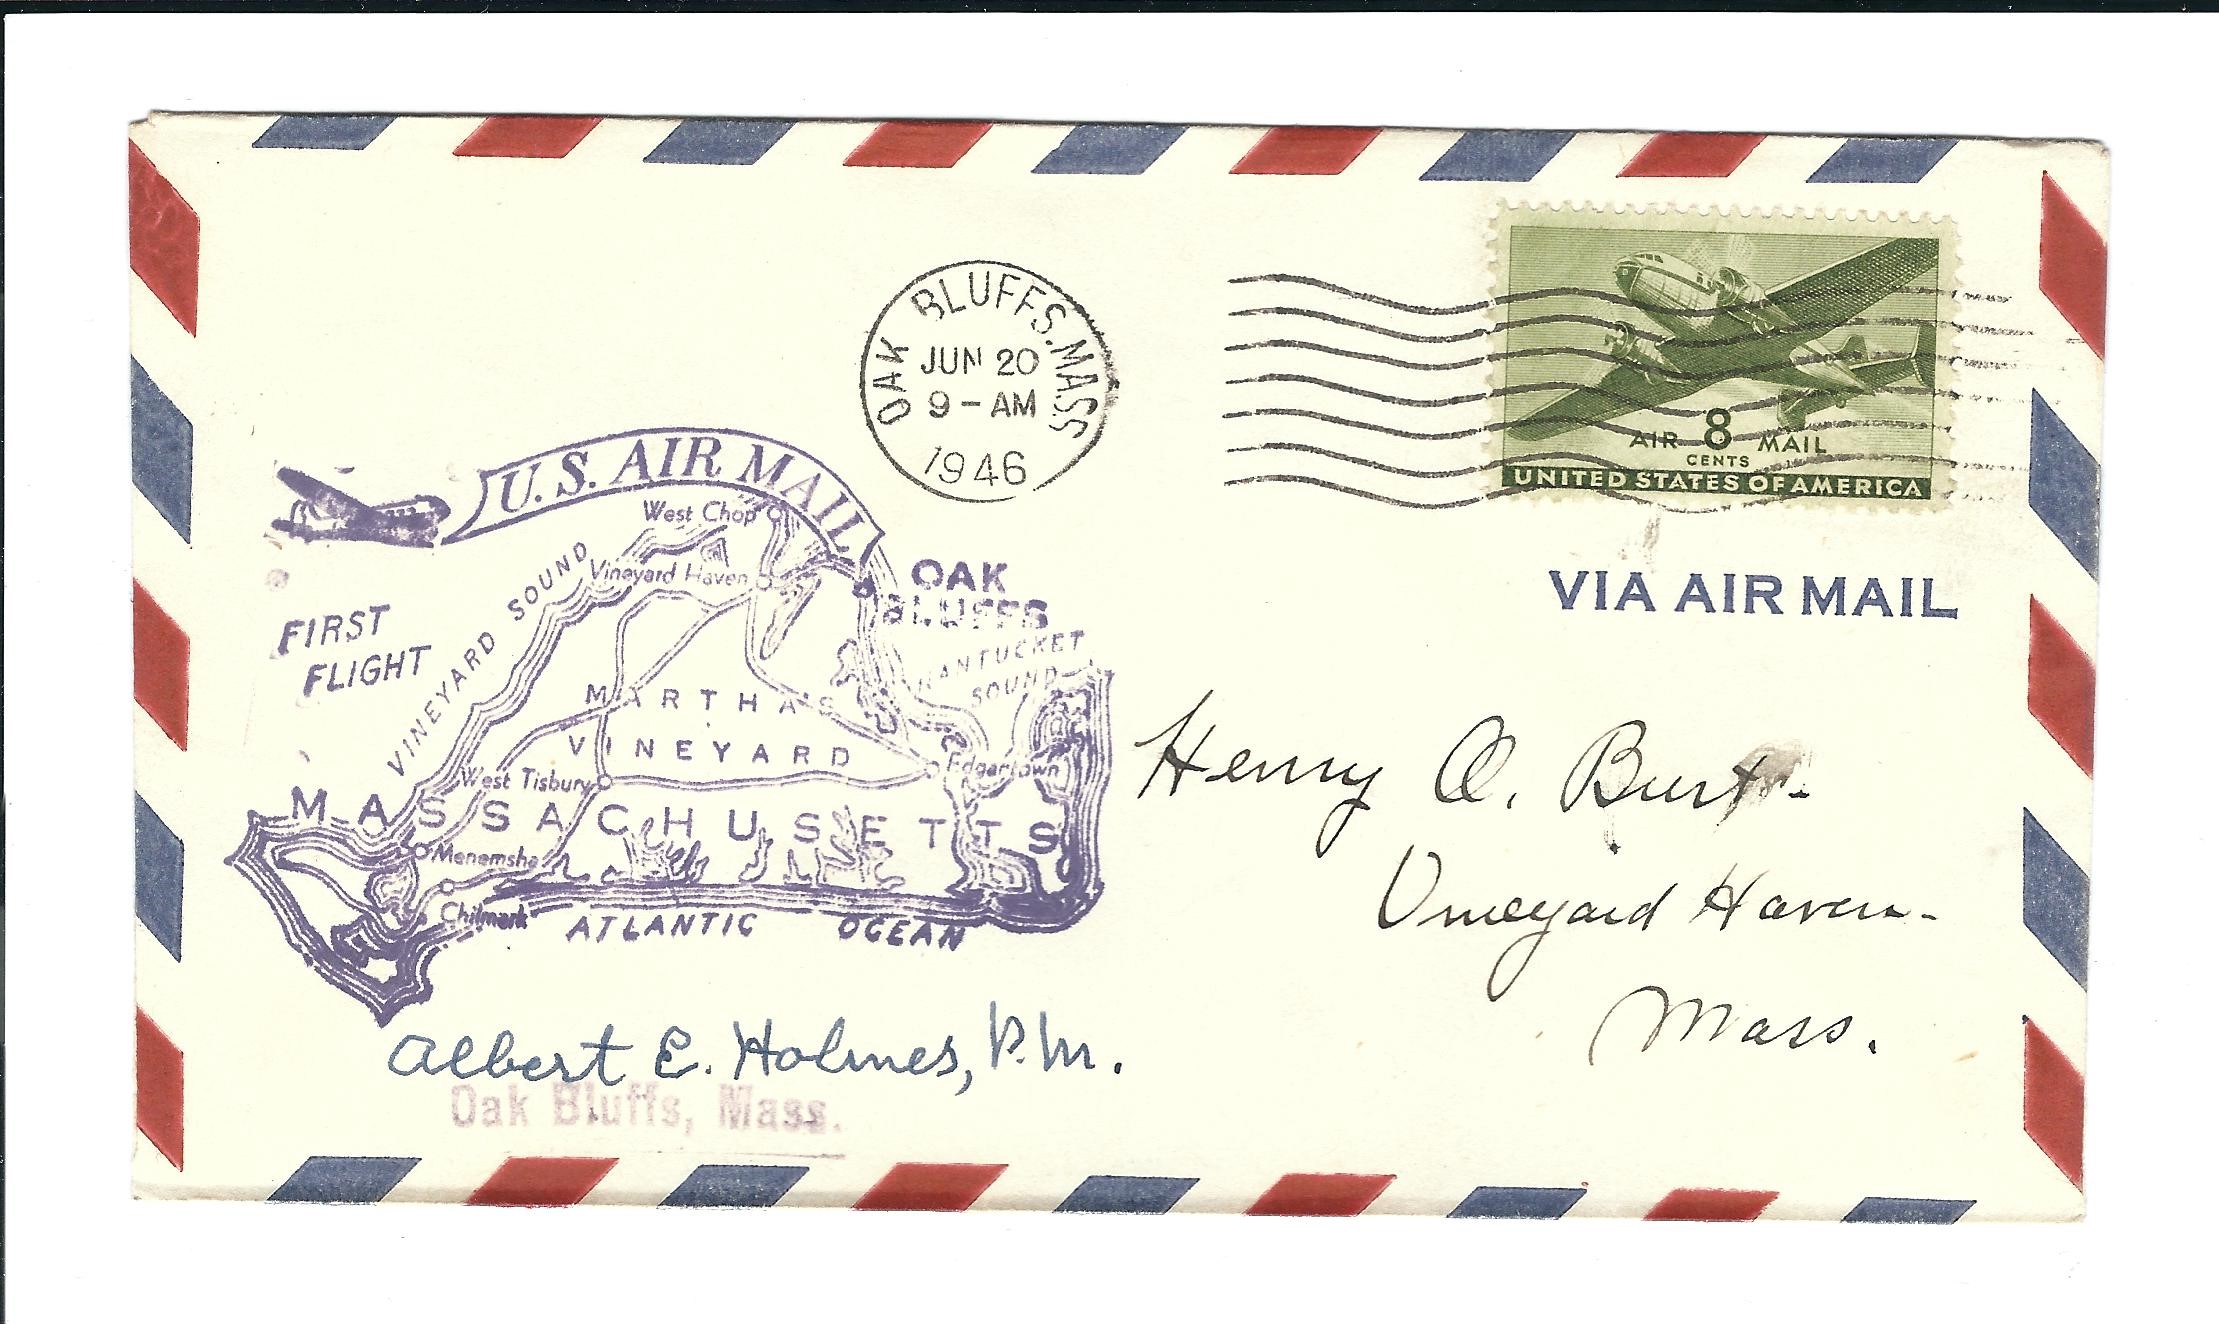 OAK BLUFFS. MASS
JUN 20
9 - AM
1946
AIR 8 MAIL
CENTS
UNITED STATES OF AMERICA
VIA AIR MAIL
U.S. AIR MAIL
West Chop
Vineyard Haven
OAK
BLUFFS
FIRST
FLIGHT
VINEYARD SOUND
NANTUCKET
SOUND
MARTHA'S
VINEYARD
Edgartown
West Tisbury
MASSACHUSETTS
Menemsha
Chilmark
ATLANTIC OCEAN
Henry A. Burt-
Vineyard Haven-
Mass.
Albert E. Holmes, P.M.
Oak Bluffs, Mass.